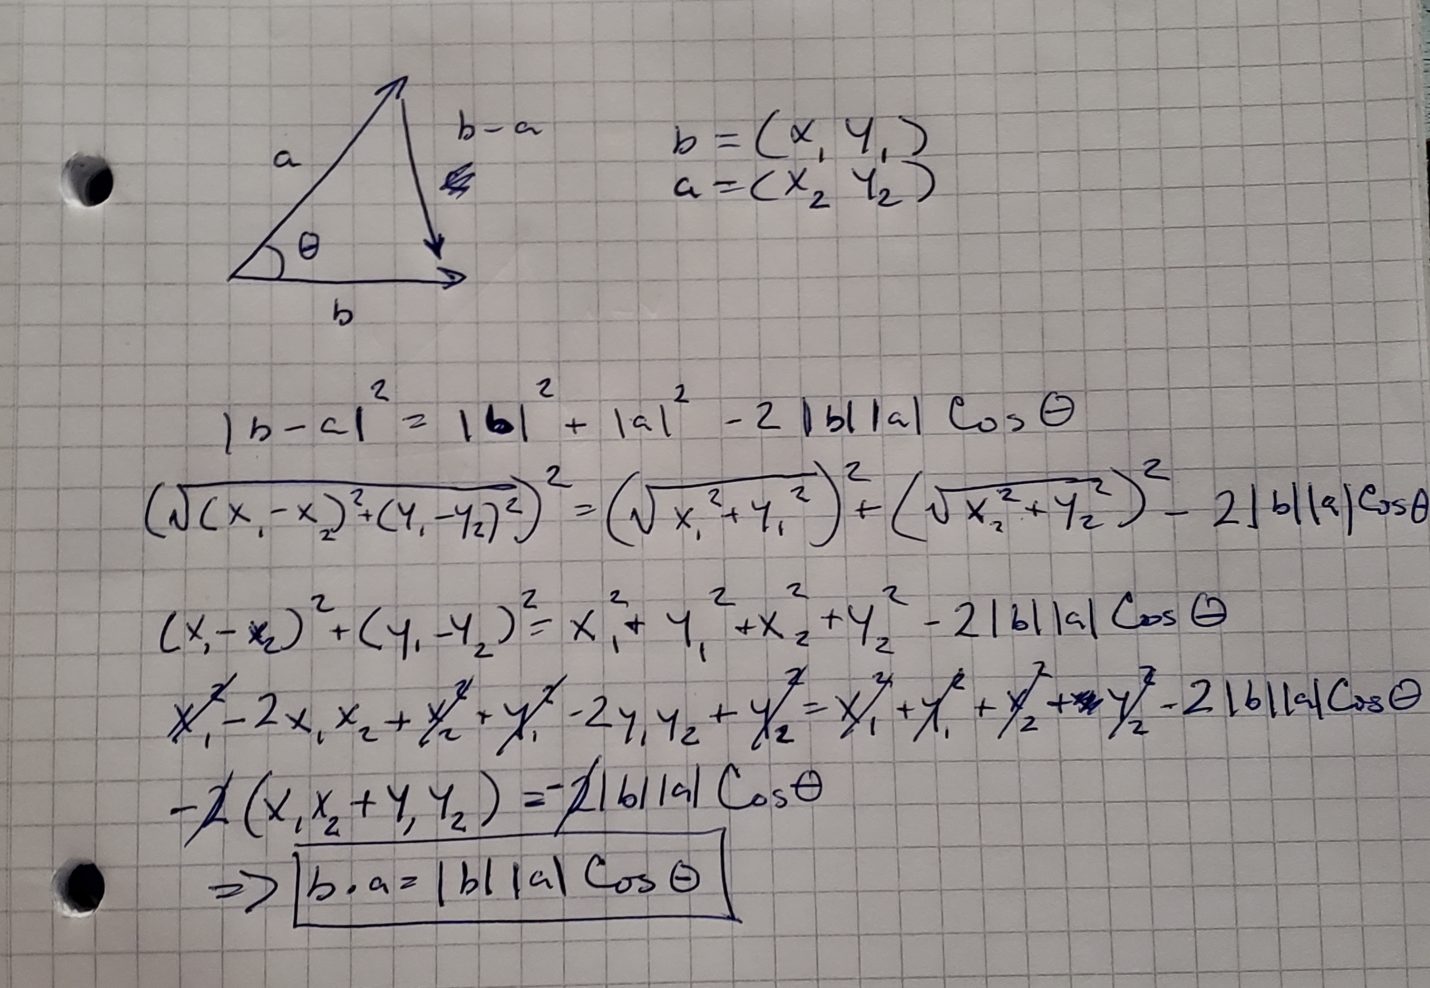 b-a
a
θ
b
b = (x₁ y₁)
a = (x₂ y₂)
|b-a|² = |b|² + |a|² - 2|b||a| Cos θ
(√(x₁-x₂)²+(y₁-y₂)²)² = (√x₁²+y₁²)² + (√x₂²+y₂²)² - 2|b||a|Cosθ
(x₁-x₂)²+(y₁-y₂)² = x₁²+y₁²+x₂²+y₂² - 2|b||a| Cos θ
x₁² - 2x₁x₂ + x₂² + y₁² - 2y₁y₂ + y₂² = x₁² + y₁² + x₂² + y₂² - 2|b||a|Cosθ
-2(x₁x₂+y₁y₂) = -2|b||a| Cosθ
=> b·a = |b||a| Cos θ